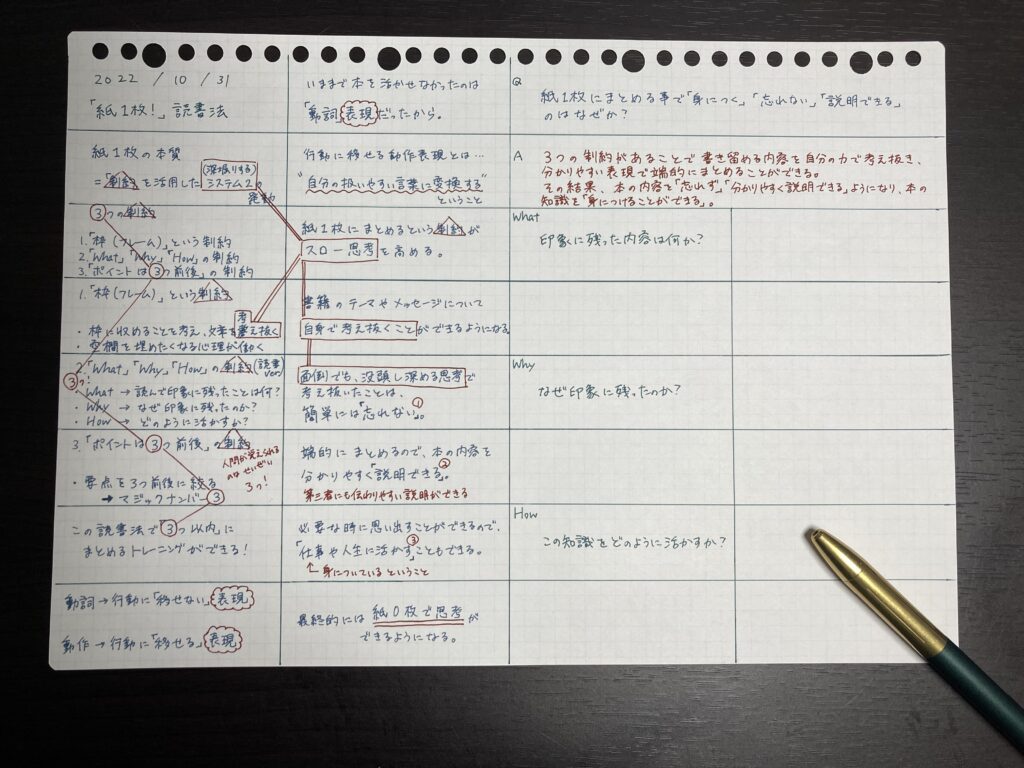 2022 / 10 / 31
「紙1枚!」読書法
紙1枚の本質
(深堀りする)
=「制約」を活用したシステム2の
発動
3つの制約
1.「枠(フレーム)」という制約
2.「What」「Why」「How」の制約
3.「ポイントは3つ前後」の制約
1.「枠(フレーム)」という制約
・枠に収めることを考え、文章を考え抜く
・空欄を埋めたくなる心理が働く
2.「What」「Why」「How」の制約(読書ver.)
3つ!
・What → 読んで印象に残ったことは何?
・Why → なぜ印象に残ったのか?
・How → どのように活かすか?
3.「ポイントは3つ前後」の制約
人間が覚えられる
のはせいぜい
3つ!
・要点を3つ前後に絞る
→マジックナンバー3
この読書法で3つ以内に
まとめるトレーニングができる!
動詞→行動に「移せない」表現
動作→行動に「移せる」表現
いままで本を活かせなかったのは
「動詞」表現だったから。
行動に移せる動作表現とは…
"自分の扱いやすい言葉に変換する"
ということ
紙1枚にまとめるという制約が
スロー思考を高める。
書籍のテーマやメッセージについて
自身で考え抜くことができるようになる
面倒でも、没頭し深める思考で
考え抜いたことは、
簡単には「忘れない」。①
端的にまとめるので、本の内容を
分かりやすく「説明できる」。②
第三者にも伝わりやすい説明ができる
必要な時に思い出すことができるので、
「仕事や人生に活かす」こともできる。③
↑身についているということ
最終的には紙0枚で思考が
できるようになる。
Q
紙1枚にまとめる事で「身につく」「忘れない」「説明できる」
のはなぜか?
A 3つの制約があることで書き留める内容を自分の力で考え抜き、
分かりやすい表現で端的にまとめることができる。
その結果、本の内容を「忘れず」「分かりやすく説明できる」ようになり、本の
知識を「身につけることができる」。
What
印象に残った内容は何か?
Why
なぜ印象に残ったのか?
How
この知識をどのように活かすか?